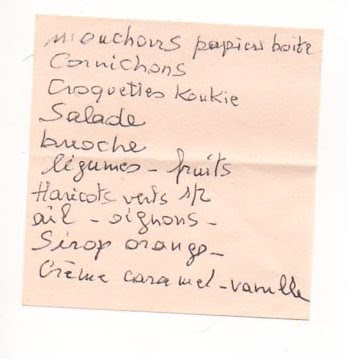 mouchoirs papier boite
Cornichons
Croquettes Koukie
Salade
brioche
légumes - fruits
Haricots verts 1/2
ail - oignons -
Sirop orange -
Crème caramel - vanille